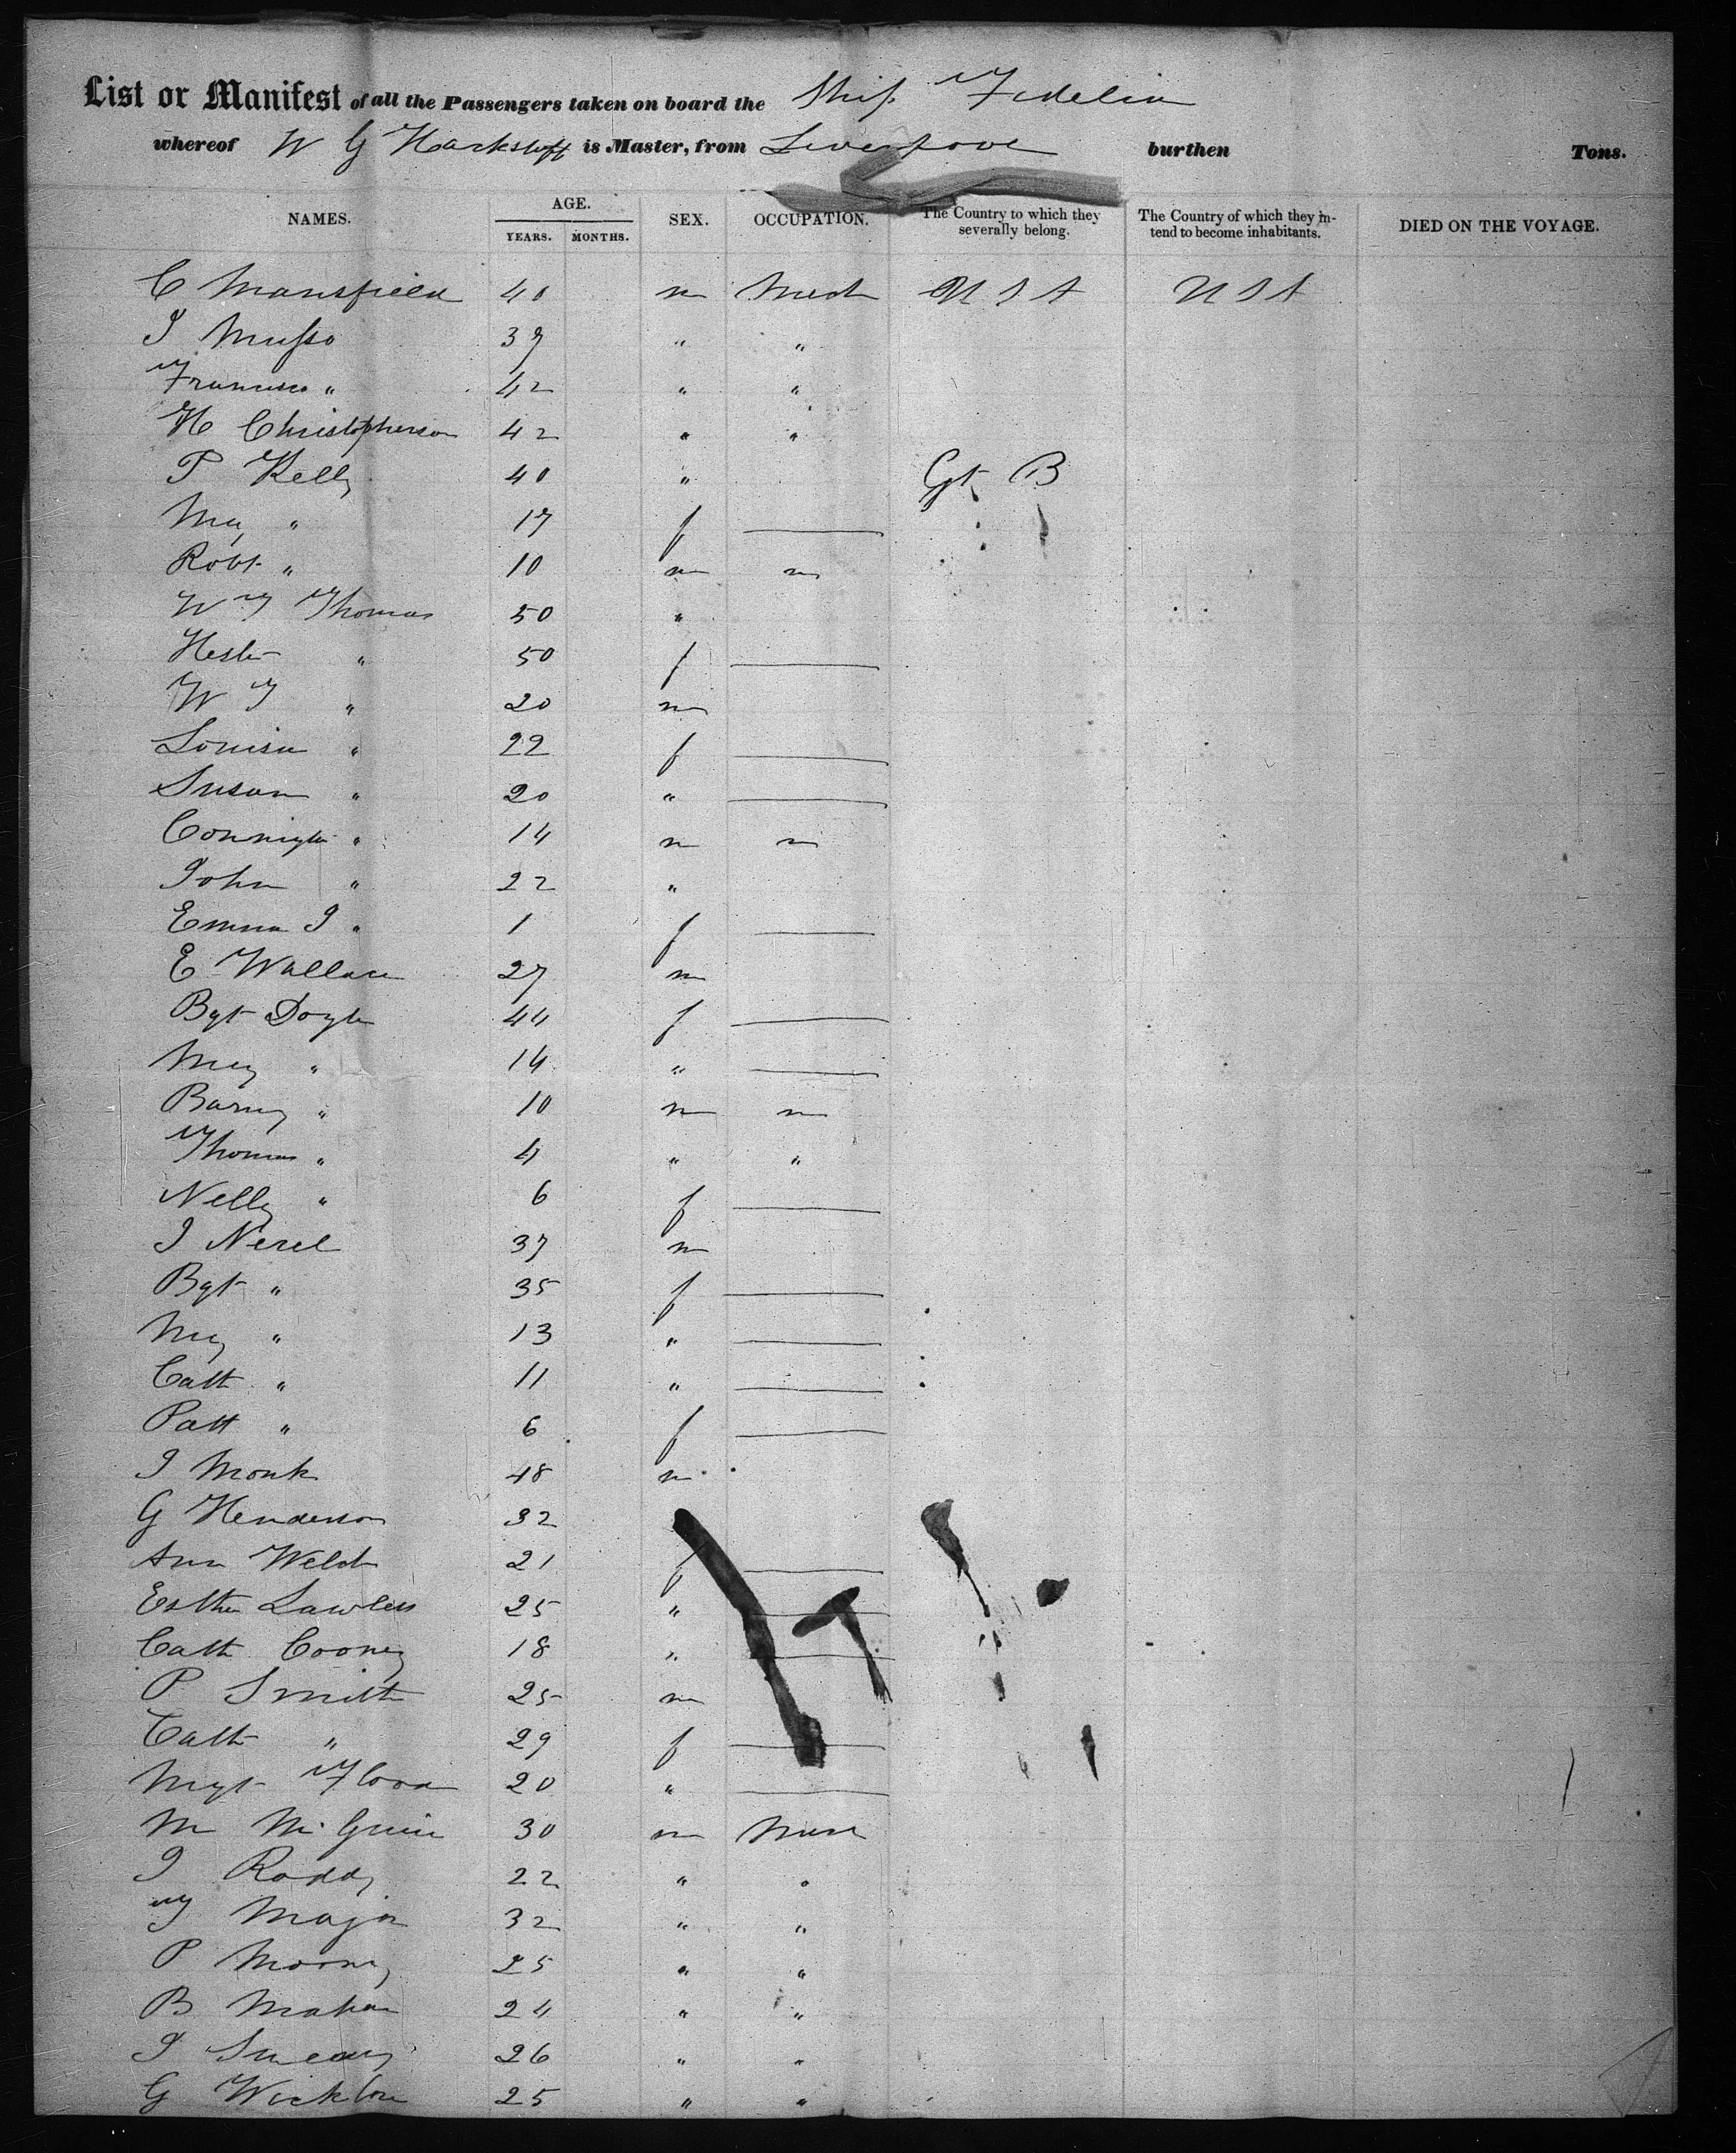 List or Manifest of all the Passengers taken on board the Ship Fidelia
whereof W G Hackstaff is Master, from Liverpool burthen Tons.
NAMES. AGE. YEARS. MONTHS. SEX. OCCUPATION. The Country to which they severally belong. The Country of which they in-tend to become inhabitants. DIED ON THE VOYAGE.
C Mansfield 40 m Mech U S A U S A
J Musso 39 " "
Francisco " 42 " "
H Christopherson 42 " "
P Kelly 40 " Gt B
My " 17 f
Robt " 10 m
W T Thomas 50 "
Hester " 50 f
W T " 20 m
Louisa " 22 f
Susan " 20 "
" 14 m
John " 22 "
Emma J " 1 f
E Wallace 27 m
Bgt Doyle 44 f
My " 14 "
Barny " 10 m
Thomas " 4 " "
Nelly " 6 f
J 37 m
Bgt " 35 f
My " 13 "
Cath " 11 "
Patt " 6 f
J Monk 48 m
G Henderson 32
Ann Welch 21 f
Esther Lawless 25 "
Cath Cooney 18 "
P Smith 25 m
Cath " 29 f
Mgt Flood 20 "
M McGuire 30 m
J Roddy 22 " "
T Major 32 " "
P Mooney 25 " "
B Mahan 24 " "
J Sweeny 26 " "
G Wicklow 25 " "